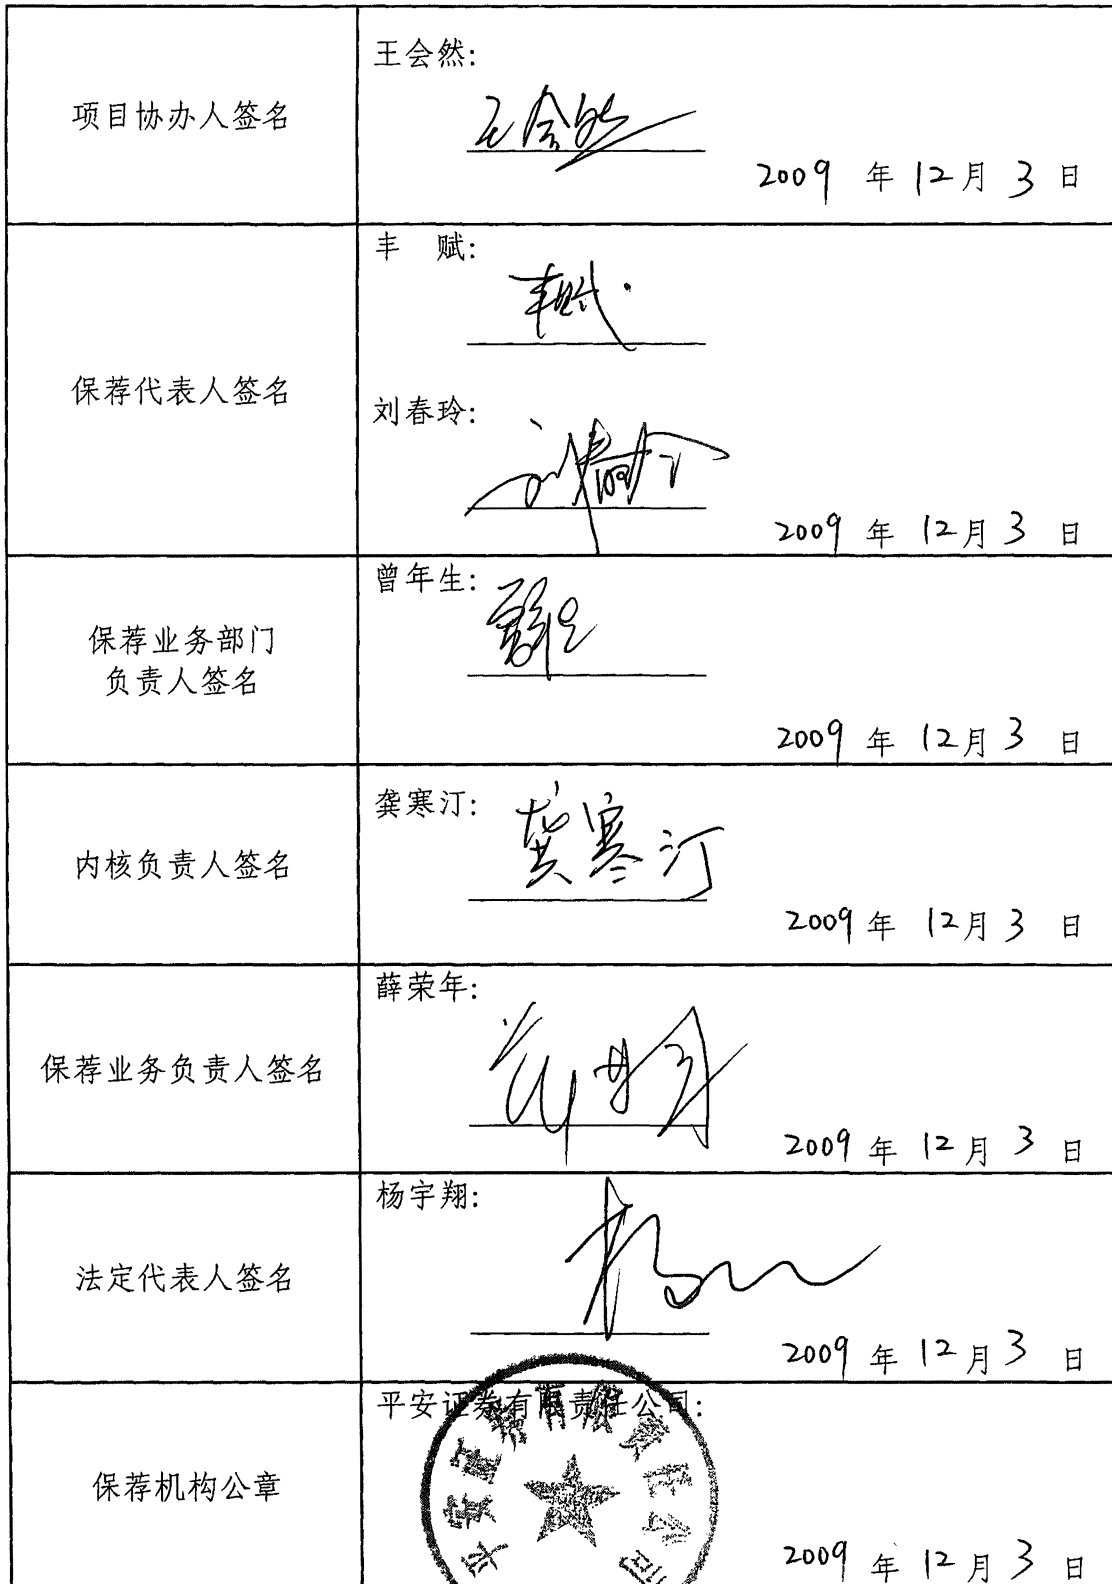 项目协办人签名
王会然:
王会然
2009 年 12 月 3 日
保荐代表人签名
丰 赋:
丰赋
刘春玲:
刘春玲
2009 年 12 月 3 日
保荐业务部门
负责人签名
曾年生:
曾年生
2009 年 12 月 3 日
内核负责人签名
龚寒汀:
龚寒汀
2009 年 12 月 3 日
保荐业务负责人签名
薛荣年:
2009 年 12 月 3 日
法定代表人签名
杨宇翔:
2009 年 12 月 3 日
保荐机构公章
平安证券有限责任公司:
平安证券有限责任公司
2009 年 12 月 3 日